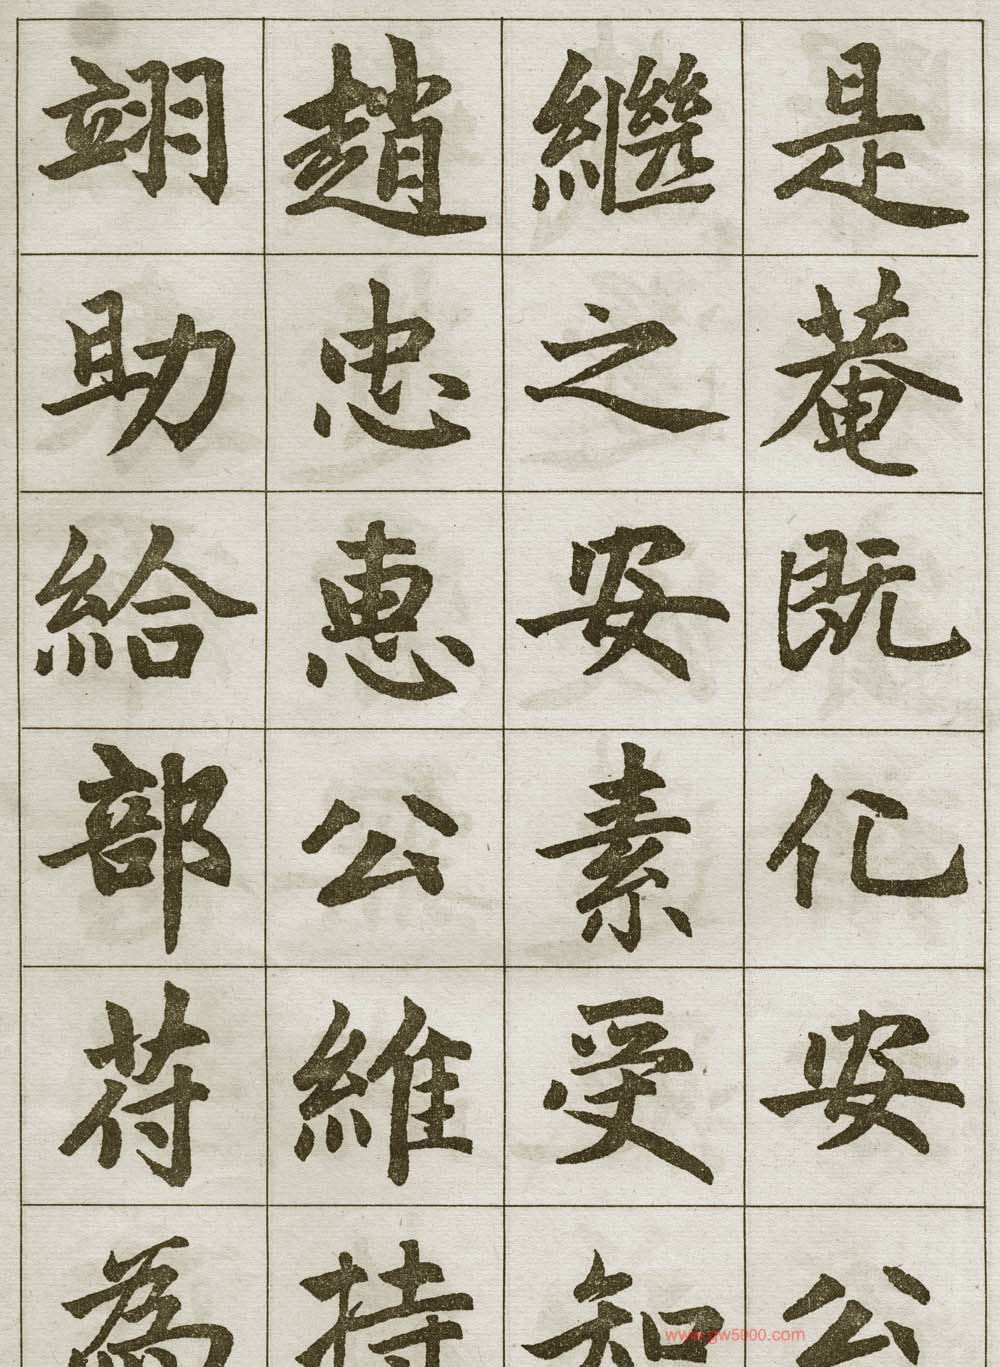 是菴既化安公
繼之安素受知
趙忠惠公維持
翊助給部苻為
www.gw5000.com